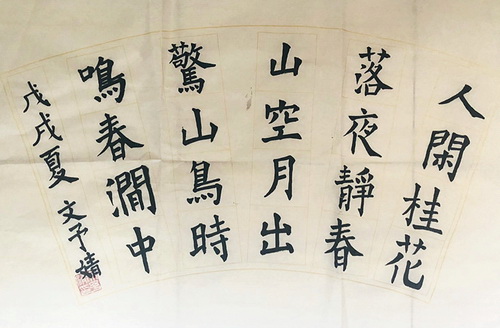 人閑桂花
落夜靜春
山空月出
驚山鳥時
鳴春澗中
戊戌夏文予婧